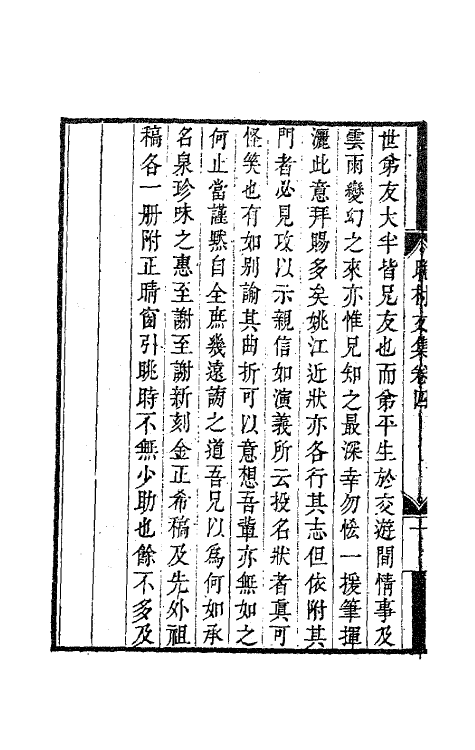 世弟友大半皆兄友也而弟平生於交遊間情事及
雲雨變幻之來亦惟兄知之最深幸勿恡一援筆揮
灑此意拜賜多矣姚江近狀亦各行其志但依附其
門者必見攻以示親信如演義所云投名狀者真可
怪笑也有如别諭其曲折可以意想吾輩亦無如之
何止當謹默自全庶幾遠謗之道吾兄以為何如承
名泉珍味之惠至謝至謝新刻金正希稿及先外祖
稿各一册附正晴窗引眺時不無少助也餘不多及
村文集卷四